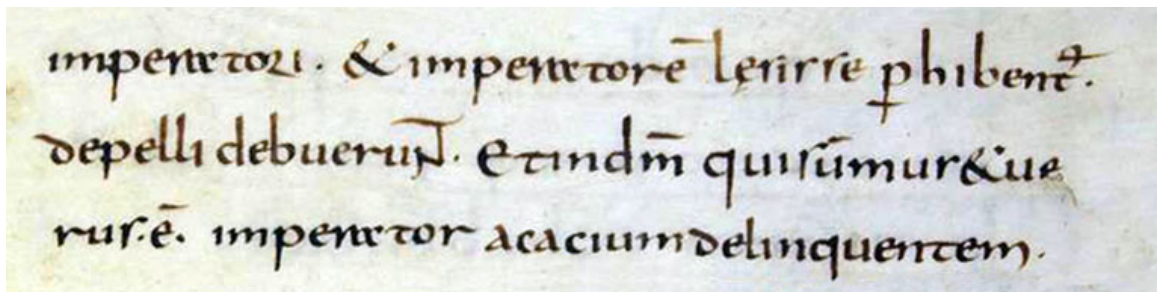 imperatori. & imperatorē lęsisse ꝑhibentᷣ.
depelli debuerunt. Et indm̄ quisūmus& ue
rus. ē. imperator acacium delinquentem.